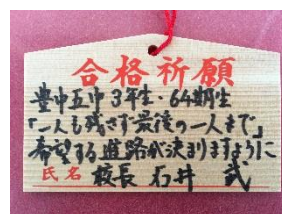 合格祈願
豊中五中3年生・64期生
「一人も残さず最後の一人まで」
希望する進路が決まりますように
氏名 校長 石井 武